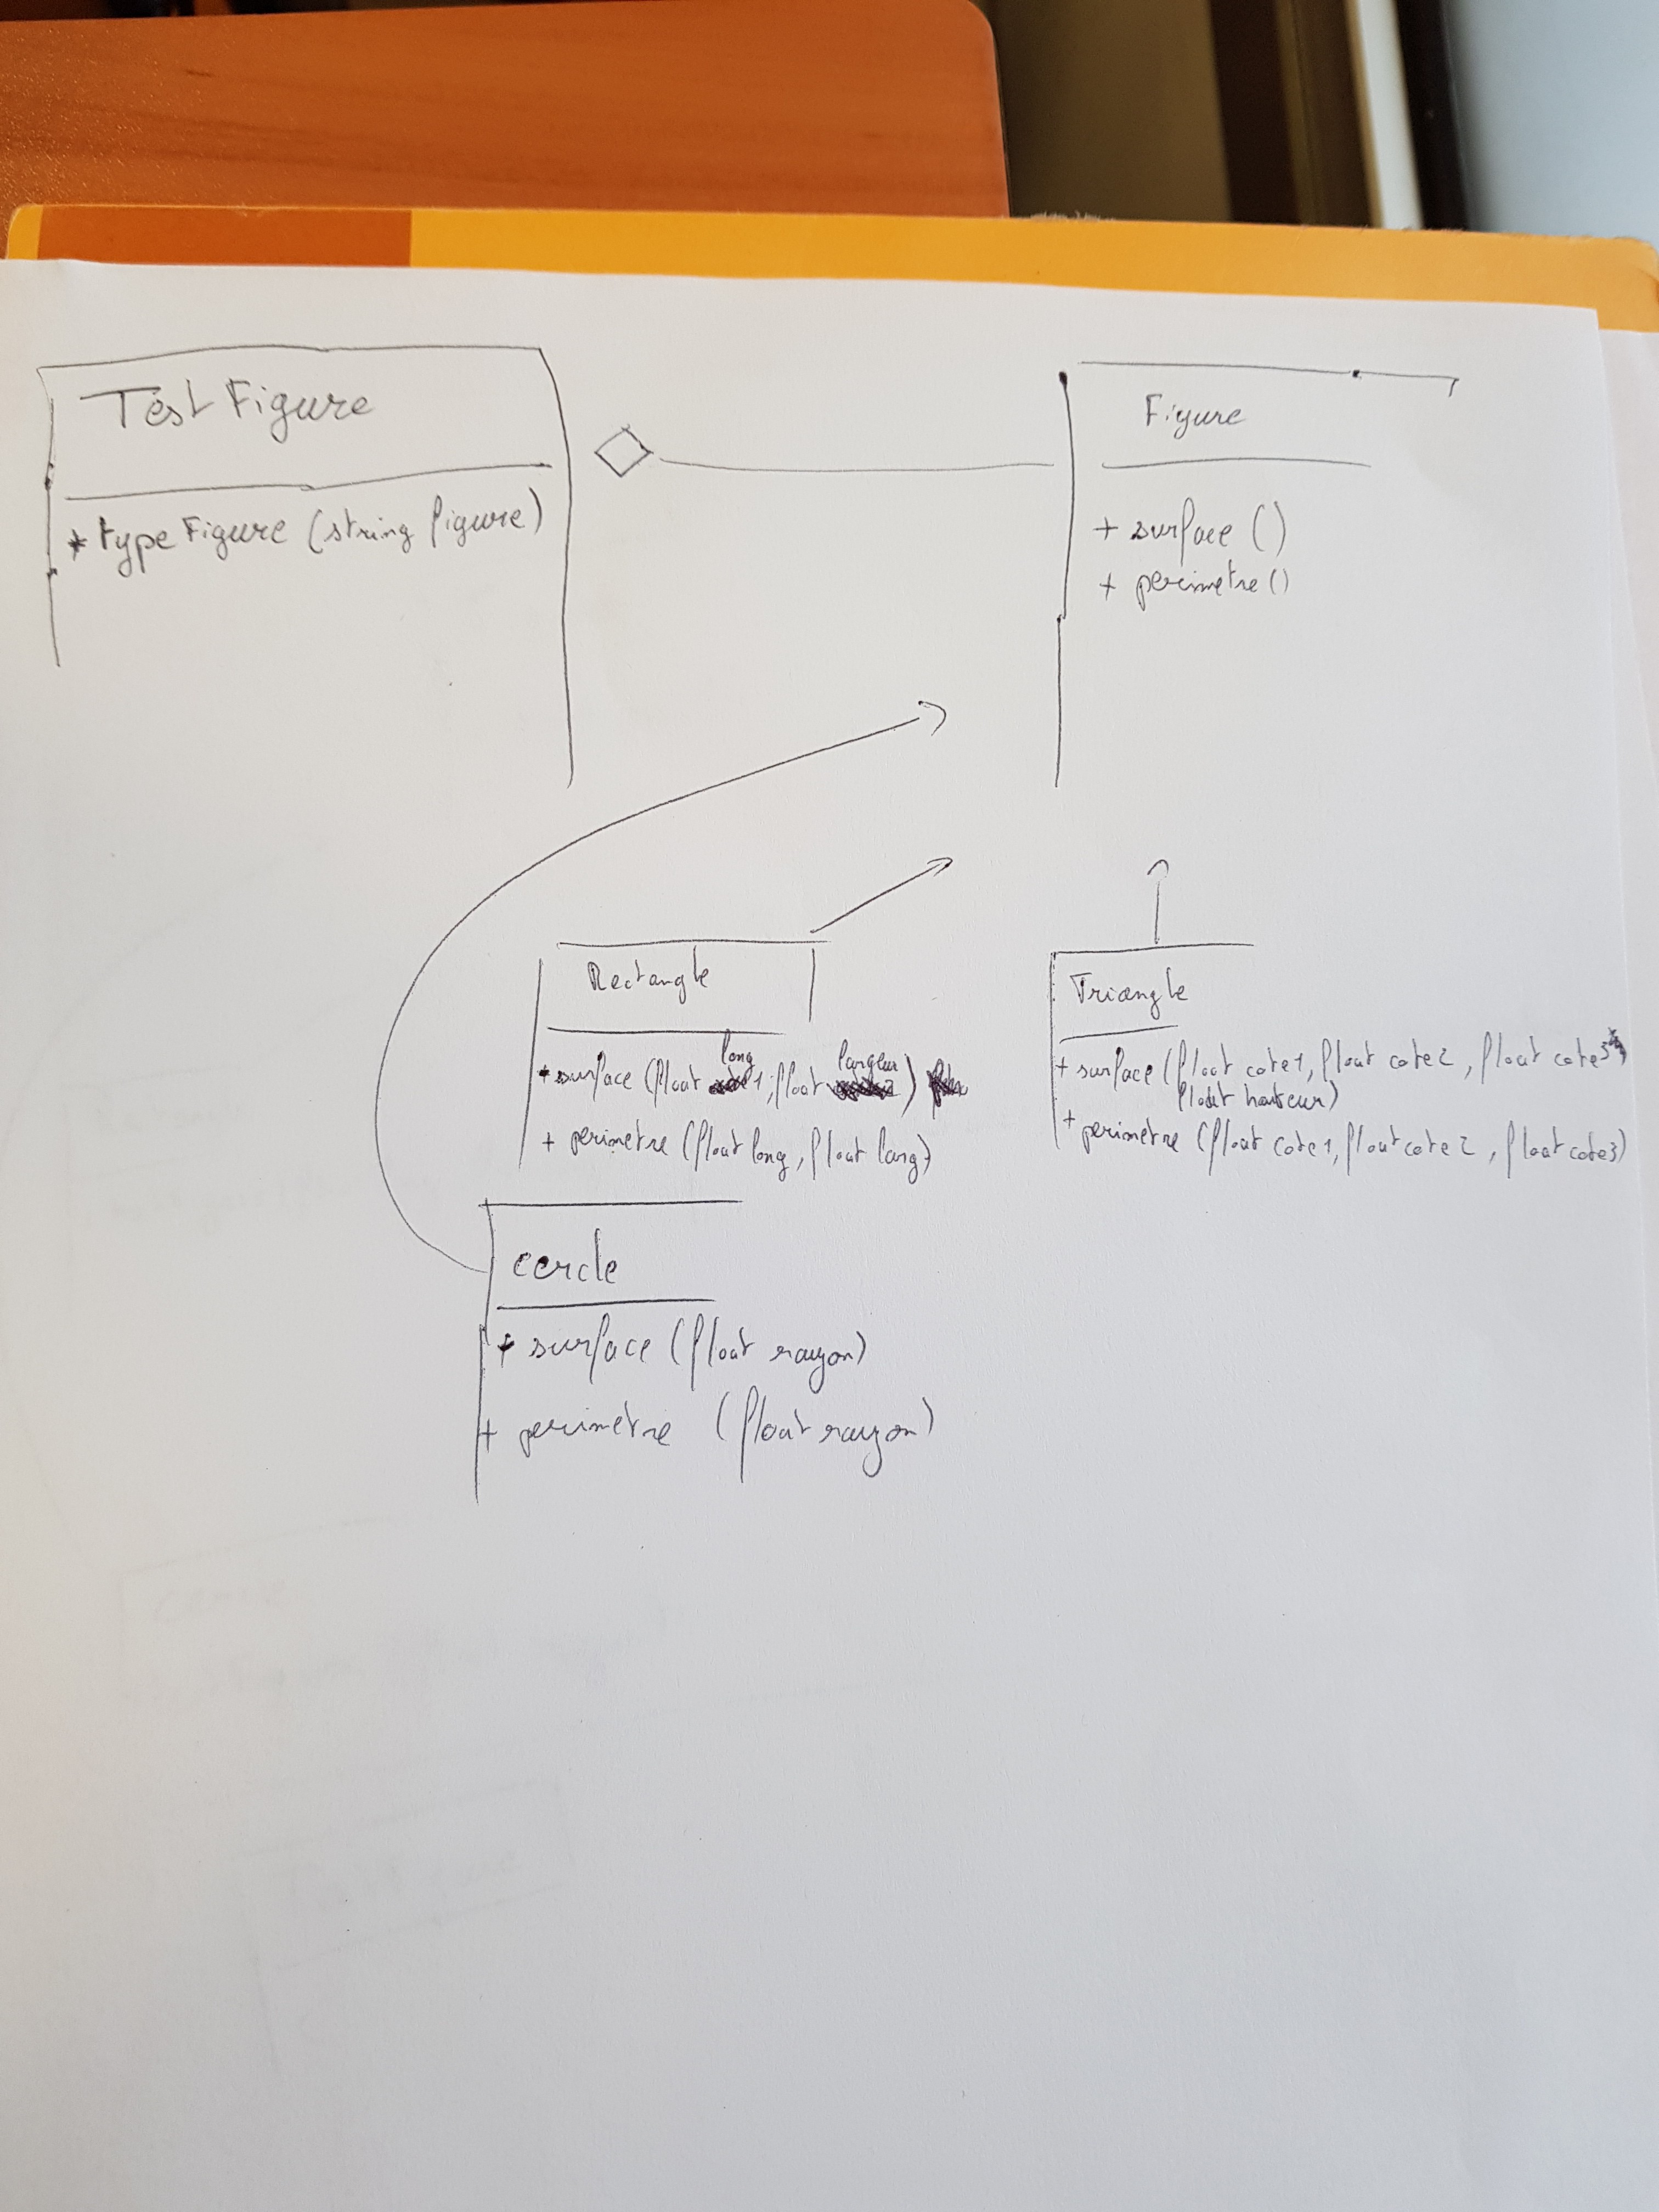 Test Figure
+ typeFigure (string figure)
Figure
+ surface ()
+ perimetre ()
Rectangle
+ surface (float long 1, float largeur)
+ perimetre (float long, float larg)
Triangle
+ surface (float cote1, float cote2, float cote3,
float hauteur)
+ perimetre (float cote1, float cote2, float cote3)
cercle
+ surface (float rayon)
+ perimetre (float rayon)